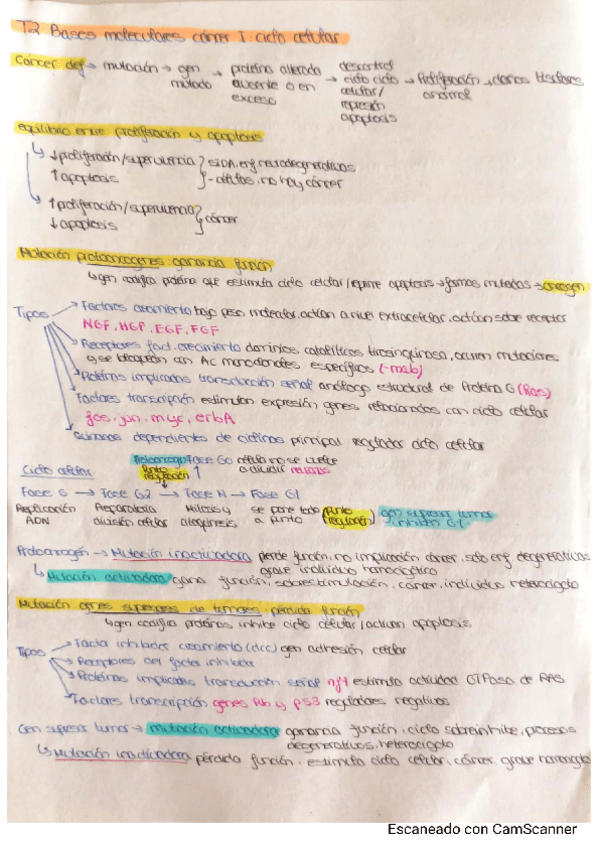 T.2 Bases moleculares cáncer I. ciclo celular
Cáncer def → mutación → gen mutado → proteína alterada ausente o en exceso → descontrol ciclo celular / represión apoptosis → Proliferación anormal → clones
equilibrio entre proliferación y apoptosis
↓ proliferación/supervivencia
↑ apoptosis
} SIDA, enf neurodegenerativas
- células, no hay cáncer
↑ proliferación/supervivencia
↓ apoptosis
} cáncer
Mutación protooncogenes: ganancia función
↳ gen codifica proteína que estimula ciclo celular/reprime apoptosis → formas mutadas → oncogen
Tipos
Factores crecimiento bajo peso molecular, actúan a nivel extracelular, actúan sobre receptor
NGF, HGF, EGF, FGF
Receptores fact. crecimiento dominios catalíticos tirosinquinasa, ocurren mutaciones
y se bloquean con AC monoclonales específicos (-mab)
Proteínas implicadas transducción señal análogo estructural de Proteína G (Ras)
Factores transcripción estimulan expresión genes relacionados con ciclo celular
fos, jun, myc, erbA
Quinasas dependientes de ciclinas principal regulador ciclo celular
Fase G0 célula no se vuelve a dividir
Ciclo celular
Punto regulación
Fase S → Fase G2 → Fase M → Fase G1
Replicación ADN
Preparatoria división celular
Mitosis y citocinesis
se pone todo a punto
(punto regulación)
gen supresor tumor inhiben G1
Protooncogén → Mutación inactivadora pierde función, no implicación cáncer, solo enf. degenerativas
grave individuo homocigótico
↳ Mutación activadora gana función, sobreestimulación, cáncer, individuo heterocigoto
Mutación genes supresores de tumores: pérdida función
↳ gen codifica proteínas inhibe ciclo celular/activan apoptosis
Tipos
Factor inhibidor crecimiento (dcc) gen adhesión celular
Receptores del factor inhibidor
Proteínas implicadas transducción señal nf1 estimula actividad GTPasa de RAS
Factores transcripción genes Rb y p53 reguladores negativos
Gen supresor tumor → mutación activadora ganancia función, ciclo sobreinhibe, procesos
degenerativos, heterocigoto
↳ Mutación inactivadora pérdida función, estimula ciclo celular, cáncer, grave homocigoto
Escaneado con CamScanner